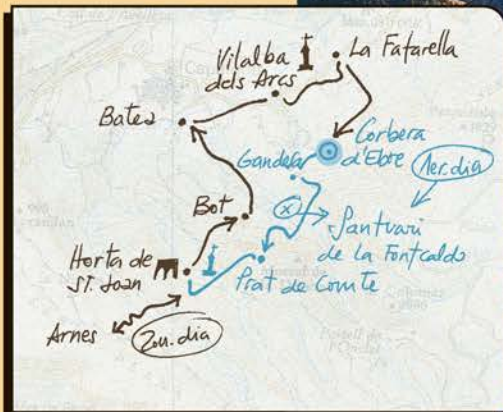 Vilalba
dels Arcs
La Fatarella
Batea
Corbera
d'Ebre
Gandesa
1er. dia
Bot
X
Santuari
de la Fontcalda
Horta de
St. Joan
Prat de Comte
Arnes
2on. dia